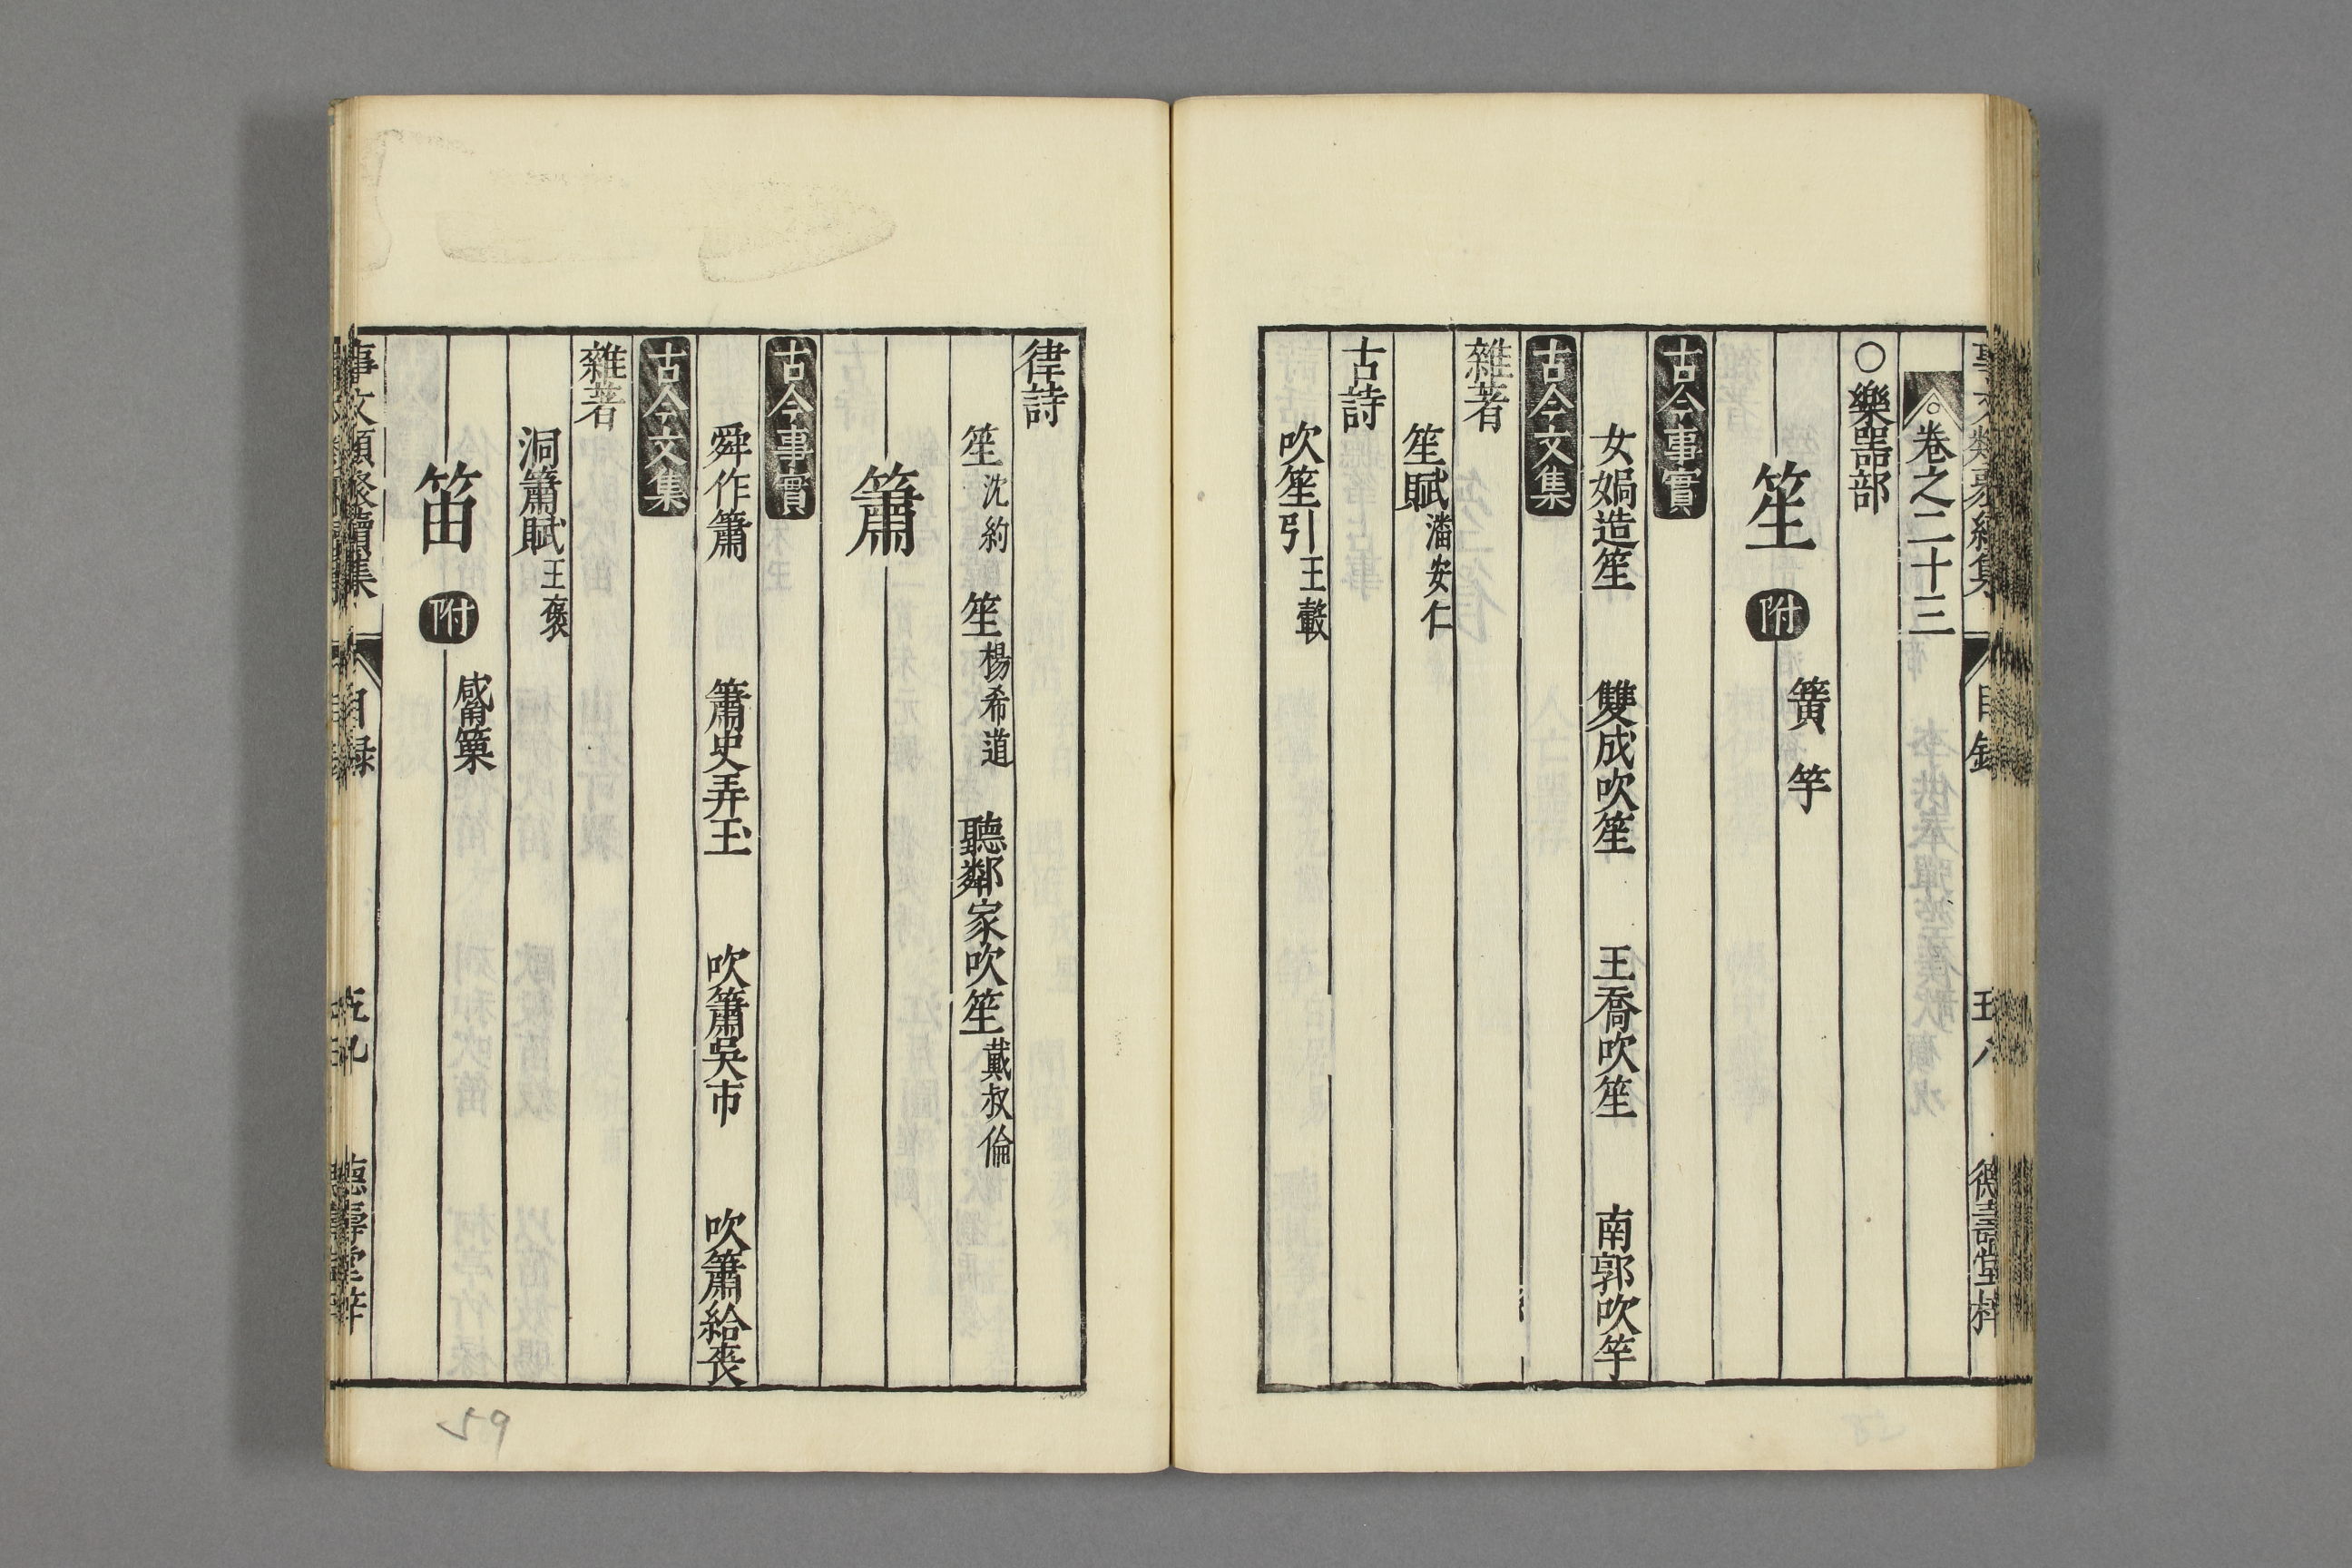 卷之二十三
○樂噐部
笙 附 簧 竽
古今事實
女媧造笙 雙成吹笙 王喬吹笙 南郭吹竽
古今文集
雜著
笙賦 潘安仁
古詩
吹笙引 王轂
律詩
笙 沈約 笙 楊希道 聽鄰家吹笙 戴叔倫
簫
古今事實
舜作簫 簫史弄玉 吹簫吳市 吹簫給喪
古今文集
雜著
洞簫賦 王褒
笛 附 觱篥
事文類聚續集 目録 五九 德壽堂梓
59